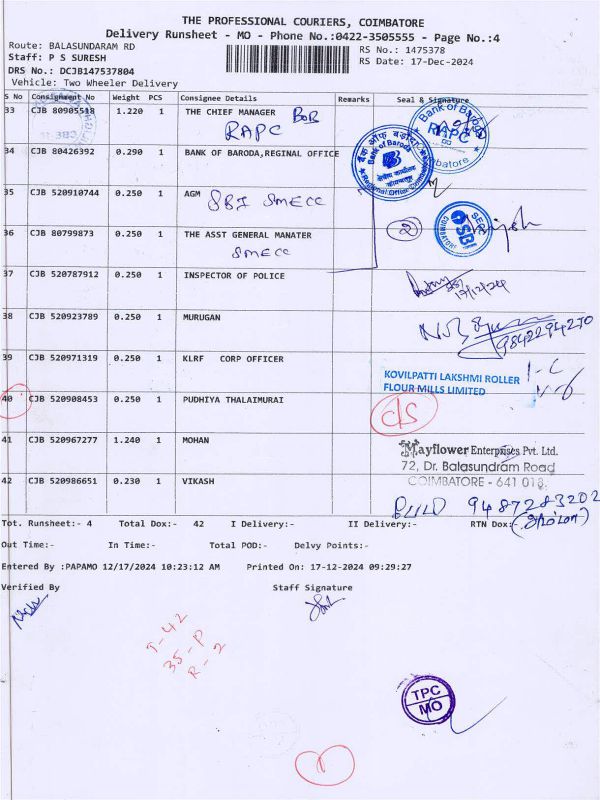 THE PROFESSIONAL COURIERS, COIMBATORE
Delivery Runsheet - MO - Phone No.:0422-3505555 - Page No.:4
Route: BALASUNDARAM RD
RS No.: 1475378
Staff: P S SURESH
RS Date: 17-Dec-2024
DRS No.: DCJB147537804
Vehicle: Two Wheeler Delivery
S No Consignment No Weight PCS Consignee Details Remarks Seal & Signature
33 CJB 80905518 1.220 1 THE CHIEF MANAGER BOB
RAPC
Bank of Baroda
RAPC
Coimbatore
34 CJB 80426392 0.290 1 BANK OF BARODA,REGINAL OFFICE
बैंक ऑफ़ बड़ौदा
Bank of Baroda
Regional Office
35 CJB 520910744 0.250 1 AGM SBI SMECC
36 CJB 80799873 0.250 1 THE ASST GENERAL MANATER
SMECC
2
COIMBATORE
37 CJB 520787912 0.250 1 INSPECTOR OF POLICE
17/12/24
38 CJB 520923789 0.250 1 MURUGAN
9842294270
39 CJB 520971319 0.250 1 KLRF CORP OFFICER
KOVILPATTI LAKSHMI ROLLER
FLOUR MILLS LIMITED
40 CJB 520908453 0.250 1 PUDHIYA THALAIMURAI
C/S
41 CJB 520967277 1.240 1 MOHAN
Mayflower Enterprises Pvt. Ltd.
72, Dr. Balasundram Road
COIMBATORE - 641 018.
42 CJB 520986651 0.230 1 VIKASH
9487283202
(அம்மா)
Tot. Runsheet:- 4 Total Dox:- 42 I Delivery:- II Delivery:- RTN Dox:-
Out Time:- In Time:- Total POD:- Delvy Points:-
Entered By :PAPAMO 12/17/2024 10:23:12 AM Printed On: 17-12-2024 09:29:27
Verified By Staff Signature
T-42
35-P
R-2
TPC
MO
1